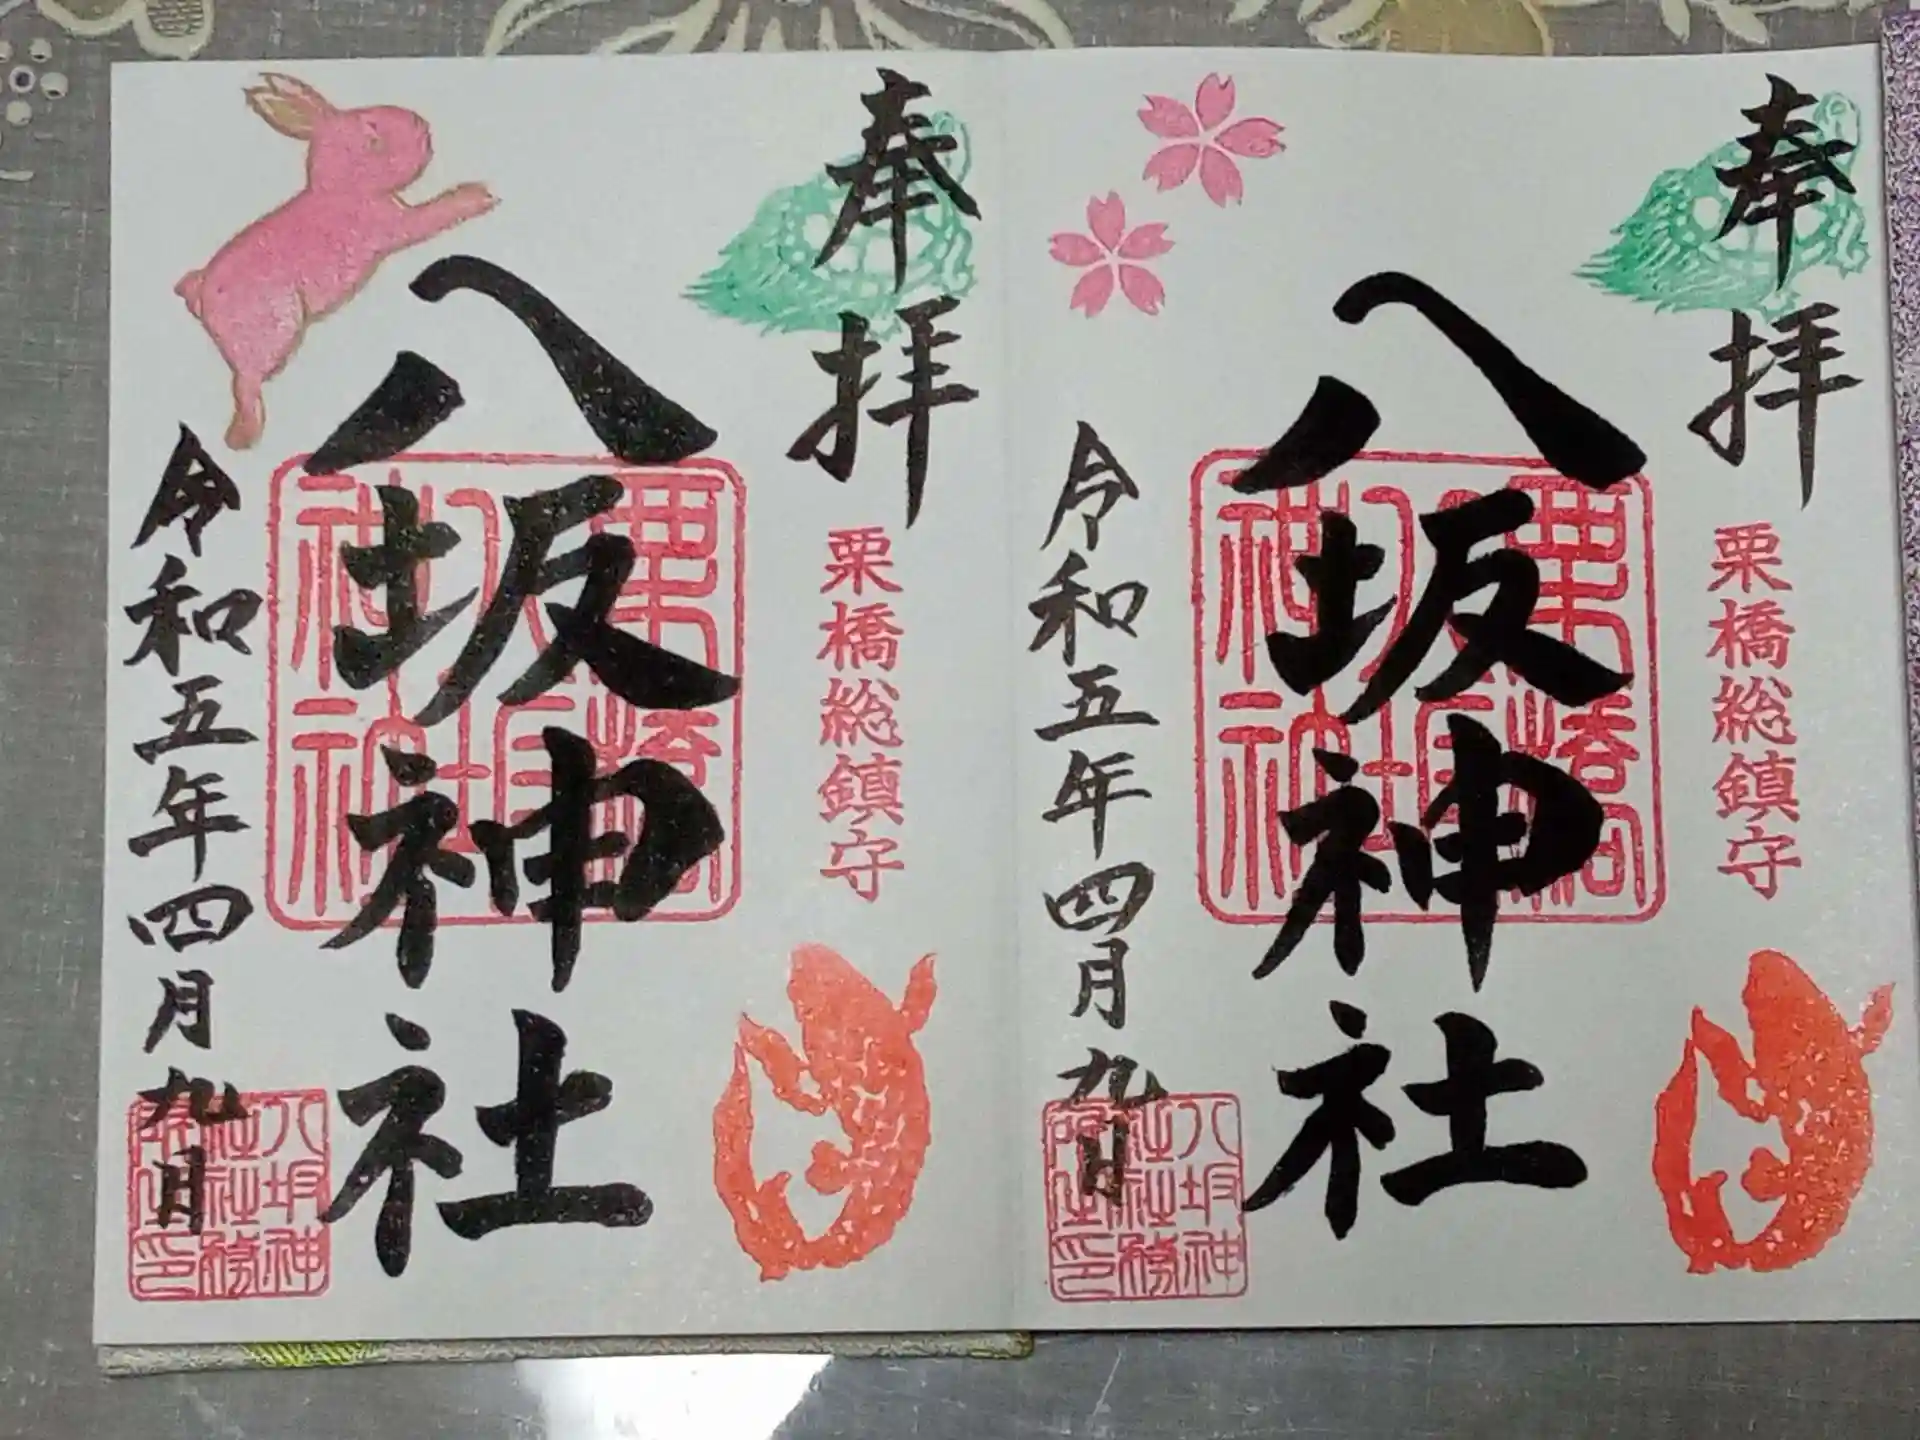 奉拝
栗橋総鎮守
八坂神社
令和五年四月九日
栗橋
八坂
神社
八坂神
社社務
所之印
奉拝
栗橋総鎮守
八坂神社
令和五年四月九日
八坂神
社社務
所之印